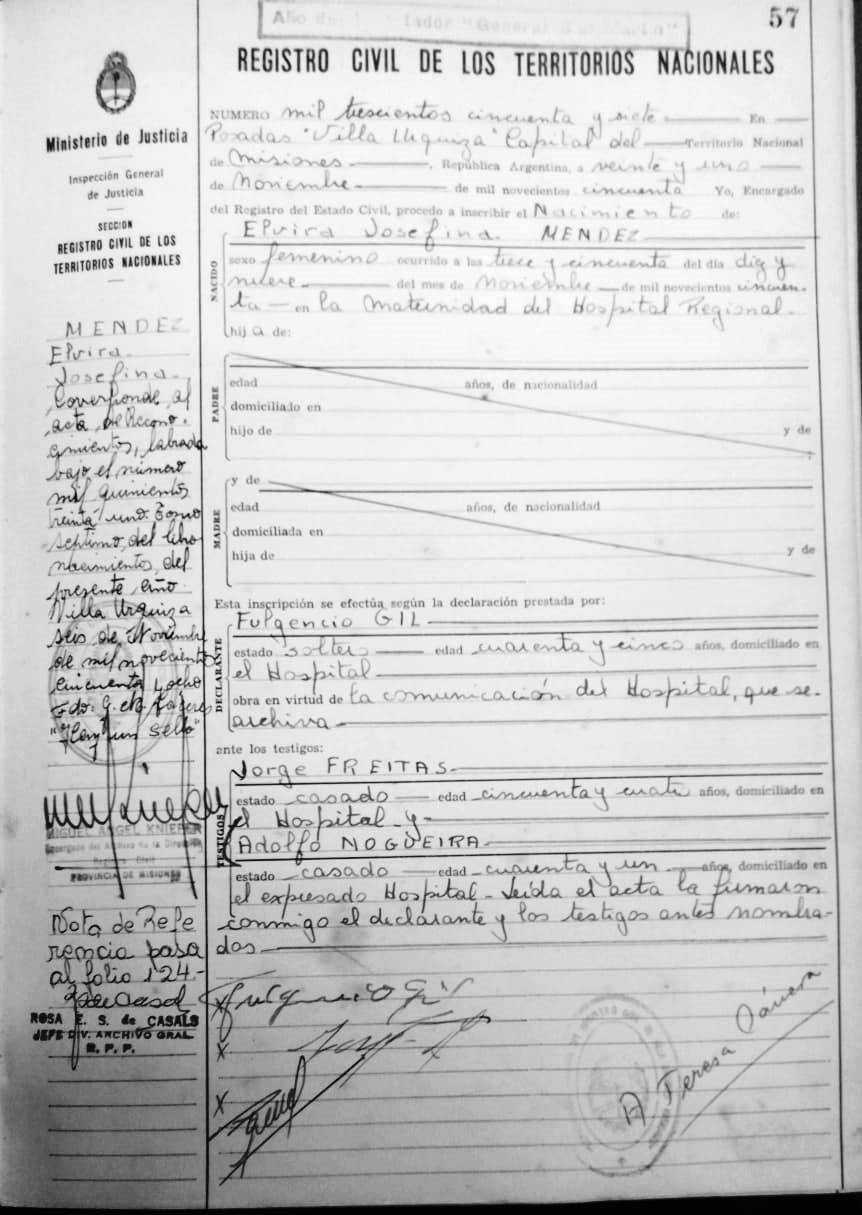 Año del Libertador "General San Martín"
57
REGISTRO CIVIL DE LOS TERRITORIOS NACIONALES
Ministerio de Justicia
Inspección General
de Justicia
SECCION
REGISTRO CIVIL DE LOS
TERRITORIOS NACIONALES
NUMERO mil trescientos cincuenta y siete En
Posadas "Villa Urquiza" Capital del Territorio Nacional
de Misiones, República Argentina, a veinte y uno
de Noviembre de mil novecientos cincuenta Yo, Encargado
del Registro del Estado Civil, procedo a inscribir el Nacimiento de:
NACIDO
Elvira Josefina MENDEZ
sexo femenino ocurrido a las trece y cincuenta del día diez y
nueve del mes de Noviembre de mil novecientos cincuen-
ta en la Maternidad del Hospital Regional.
hija de:
PADRE
edad años, de nacionalidad
domiciliado en
hijo de y de
MADRE
y de
edad años, de nacionalidad
domiciliada en
hija de y de
Esta inscripción se efectúa según la declaración prestada por:
DECLARANTE
Fulgencio GIL
estado soltero edad cuarenta y cinco años, domiciliado en
el Hospital
obra en virtud de la comunicación del Hospital, que se
archiva
ante los testigos:
TESTIGOS
Jorge FREITAS
estado casado edad cincuenta y cuatro años, domiciliado en
el Hospital y
Adolfo NOGUEIRA
estado casado edad cuarenta y un años, domiciliado en
el expresado Hospital - Leída el acta la firmaron
conmigo el declarante y los testigos antes nombra-
dos
MENDEZ
Elvira
Josefina
al
acta de Recono-
cimientos, labrada
bajo el número
mil quinientos
treinta uno. Tomo
septimo, del libro
nacimientos, del
presente año
Villa Urquiza
seis de Noviembre
de mil novecientos
cincuenta y ocho
Fdo:
"Hay un sello"
MIGUEL ANGEL KNIEPER
Encargado del Archivo de la Dirección
Registro Civil
PROVINCIA DE MISIONES
Nota de Refe
rencia pasa
al folio 124.-
ROSA E. S. de CASALS
JEFE DIV. ARCHIVO GRAL.
R. P. P.
x Fulgencio Gil
x
x
A Teresa